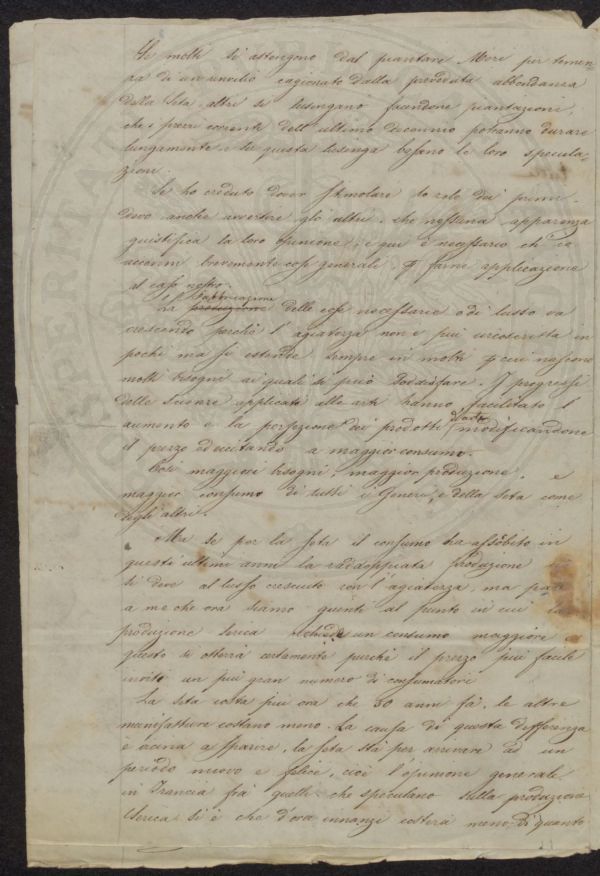 Se molti si astengono dal piantare Mori per temen-
za di un rinvilio cagionato dalla preveduta abbondanza
della Seta, altri si lusingano facendone piantazioni,
che i prezzi correnti dell'ultimo decennio potranno durare
lungamente e su questa lusinga basano le loro specula-
zioni.
Se ho creduto dover stimolare lo zelo dei primi
devo anche avvertire gli altri, che nessuna apparenza
giustifica la loro opinione, e qui è necessario ch'io
accenni brevemente cose generali p farne applicazione
al caso nostro.
fabbricazione
La produzione delle cose necessarie o di lusso va
crescendo perchè l'agiatezza non è più circoscritta in
pochi ma si estende sempre in molti p cui nascono
molti bisogni ai quali si può sodisfare. I progressi
delle Scienze applicate alle arti hanno facilitato l'
aumento e la perfezione dei prodotti modificandone
il prezzo ed eccitando a maggior consumo.
Così maggiori bisogni, maggior produzione, e
maggior consumo di tutti i Generi, e della seta come
degli altri.
Ma se per la seta il consumo ha assorbito in
questi ultimi anni la raddoppiata produzione
si deve al lusso cresciuto con l'agiatezza, ma pare
a me che ora siamo giunti al punto in cui la
produzione serica richiede un consumo maggiore e
questo si otterrà certamente purchè il prezzo più facile
inviti un più gran numero di consumatori
La seta costa più ora che 30 anni fà, le altre
manifatture costano meno. La causa di questa differenza
è vicina a sparire, la seta stà per arrivare ad un
periodo nuovo e felice, cioè l'opinione generale
in Francia frà quelli che speculano sulla produzione
Serica si è che d'ora innanzi costerà meno di quanto